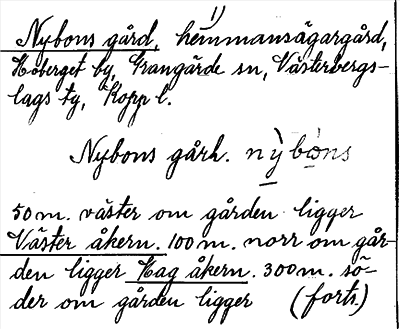 Nybons gård, hemmansägargård, 1)
Höberget by, Grangärde sn, Västerbergs-
lags tg, Kopp l.
Nybons gårh. nỳbons
50 m. väster om gården ligger
Väster åkern. 100 m. norr om går-
den ligger Hag åkern. 300 m. sö-
der om gården ligger (forts.)